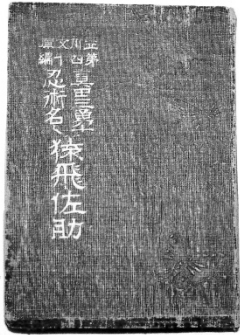 立川文庫
第四十編
真田三勇士
忍術名人 猿飛佐助